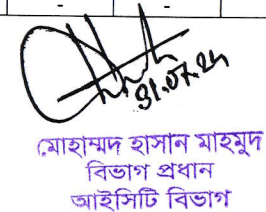 31.07.24
মোহাম্মদ হাসান মাহমুদ
বিভাগ প্রধান
আইসিটি বিভাগ